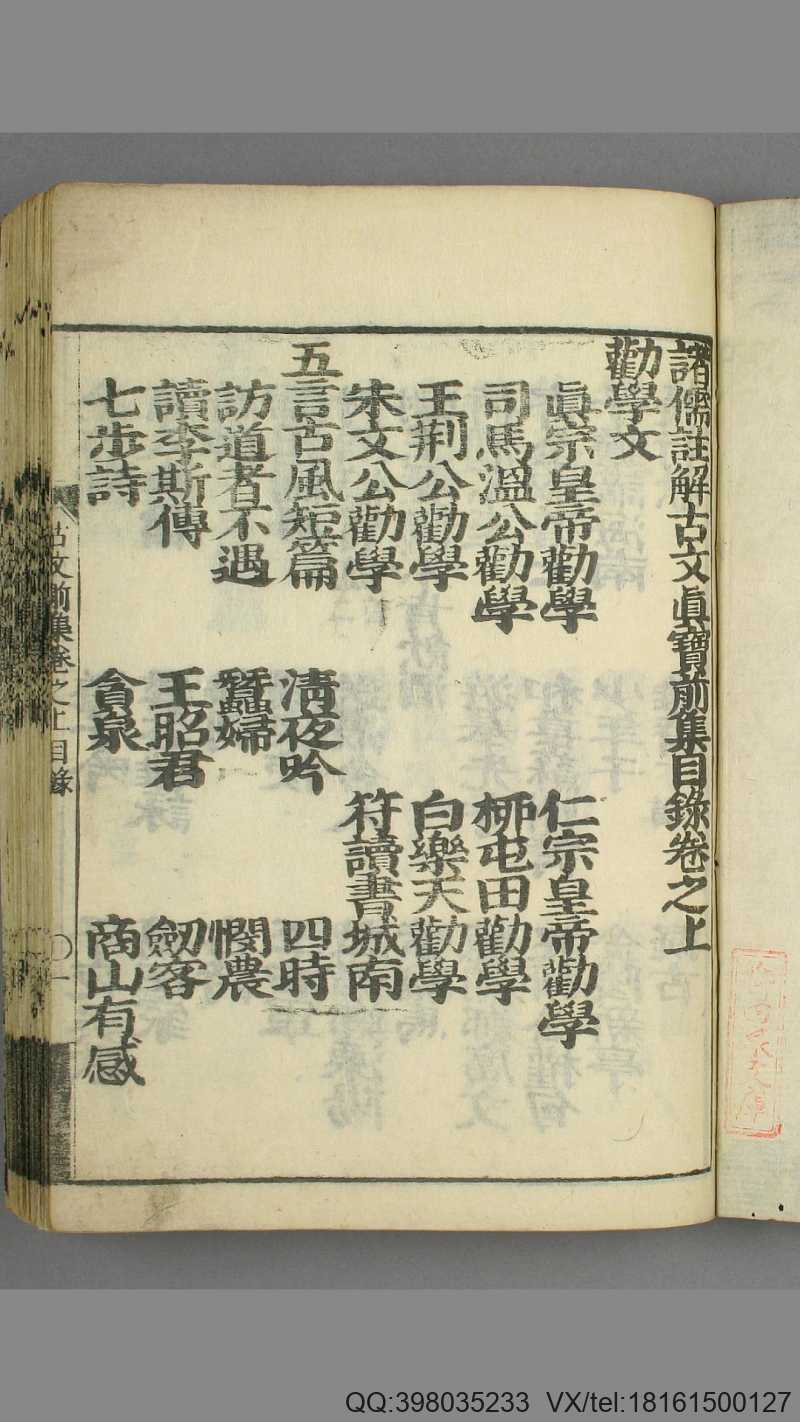 諸儒註解古文眞寶前集目錄卷之上
勸學文
眞宗皇帝勸學 仁宗皇帝勸學
司馬溫公勸學 柳屯田勸學
王荆公勸學 白樂天勸學
朱文公勸學 符讀書城南
五言古風短篇 淸夜吟 四時
訪道者不遇 蠶婦 憫農
讀李斯傳 王昭君 劒客
七步詩 貪泉 商山有感
古文前集卷之上目錄 〇一
QQ:398035233 VX/tel:18161500127